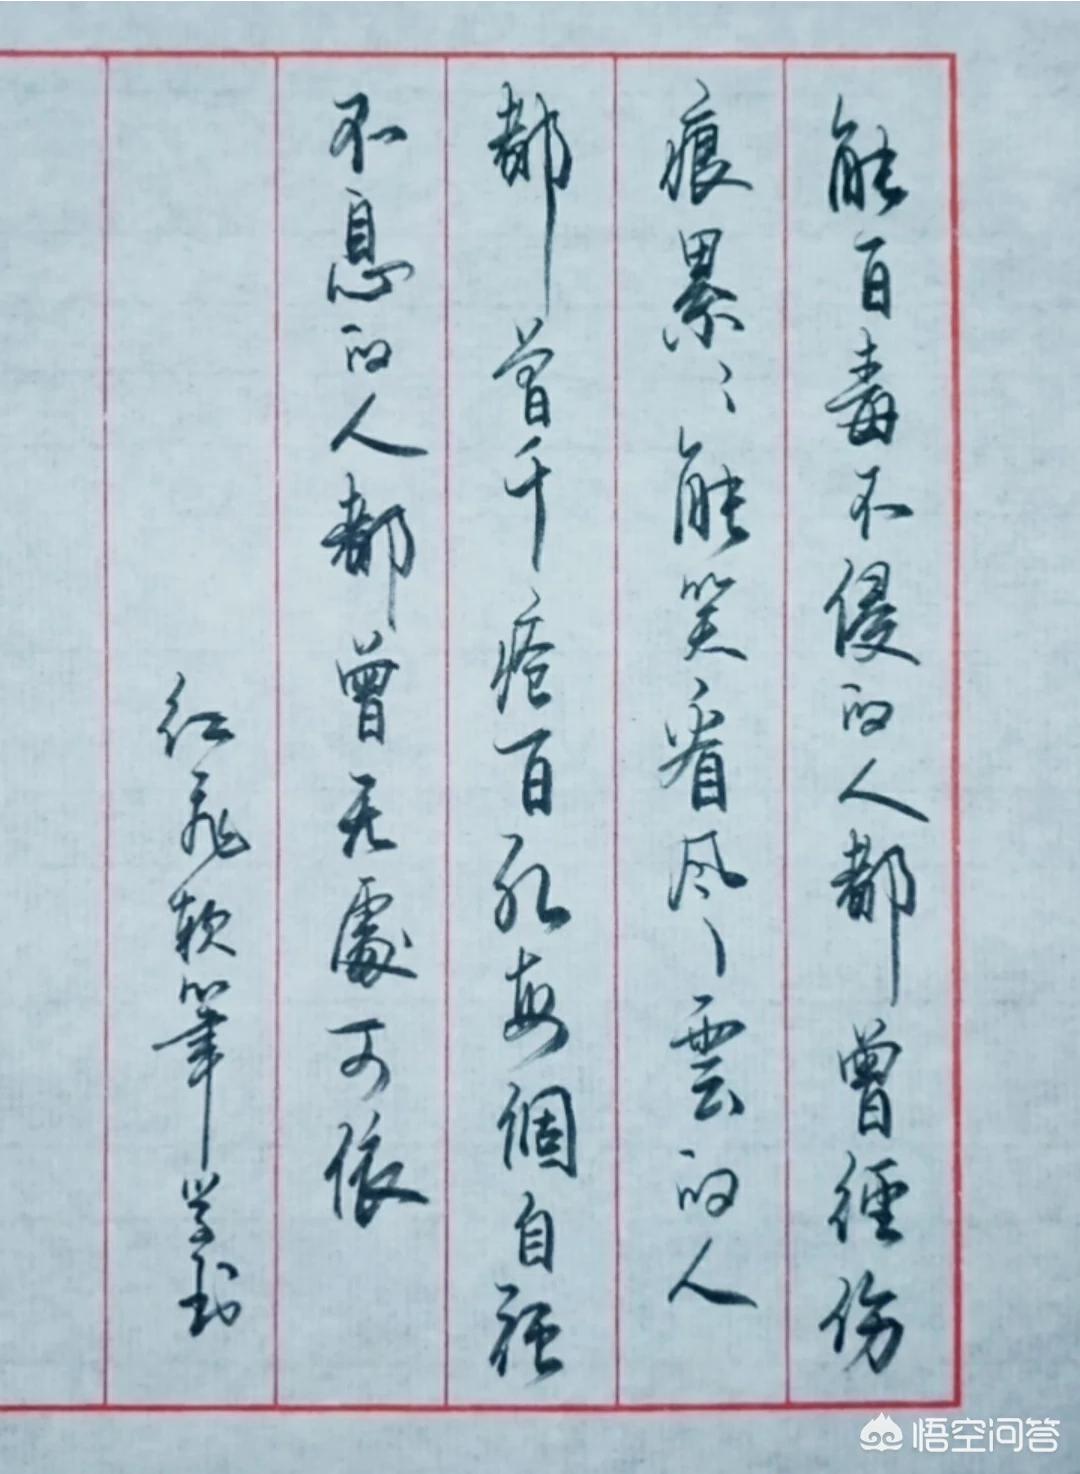 能百毒不侵的人都曾經伤
痕累々能笑看风雲的人
都曾千疮百孔每個自强
不息的人都曾无處可依
红飛软筆学书
悟空问答